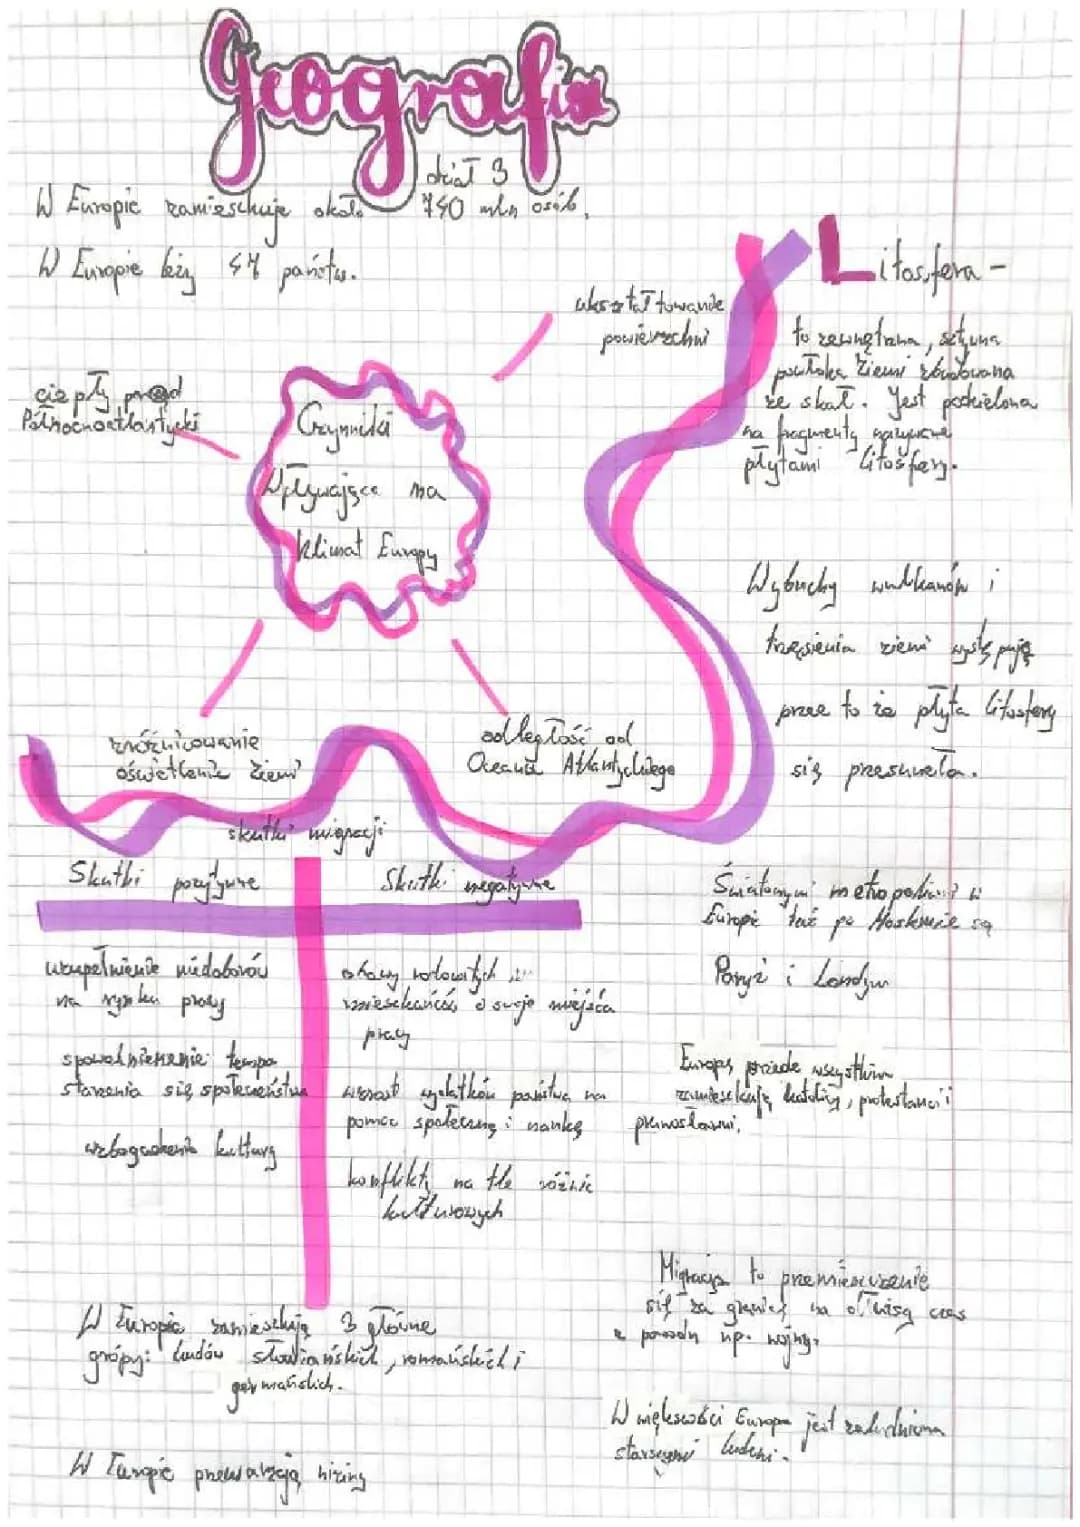 Geografia
dział 3
W Europie zamieszkuje około 740 mln osób.
W Europie leży 47 państw.
ukształtowanie
powierzchni
ciepły prąd
Północnoatlantycki
Czynniki
Wpływające na
klimat Europy
zróżnicowanie
oświetlenie Ziemi
odległość od
Oceanu Atlantyckiego
Litosfera -
to zewnętrzna, sztywna
powłoka Ziemi zbudowana
ze skał. Jest podzielona
na fragmenty nazywane
płytami litosfery.
Wybuchy wulkanów i
trzęsienia ziemi występują
przez to że płyta litosfery
się przesunęła.
skutki migracji
Skutki pozytywne
Skutki negatywne
uzupełnienie niedoborów
na rynku pracy
spowolnienie tempa
starzenia się społeczeństwa
wzbogacenie kultury
obawy rodowitych
mieszkańców o swoje miejsca
pracy
wzrost wydatków państwa na
pomoc społeczną i naukę
konflikty na tle różnic
kulturowych
Światowymi metropoliami w
Europie tuż po Moskwie są
Paryż i Londyn
Europę przede wszystkim
zamieszkują katolicy, protestanci i
prawosławni.
Migracja to przemieszczenie
się za granicę na dłuższy czas
z powodu np. wojny.
W Europie zamieszkują 3 główne
grópy: ludów słowiańskich, romańskich i
germańskich.
W większości Europa jest zaludniona
starszymi ludźmi.
W Europie przeważają niziny